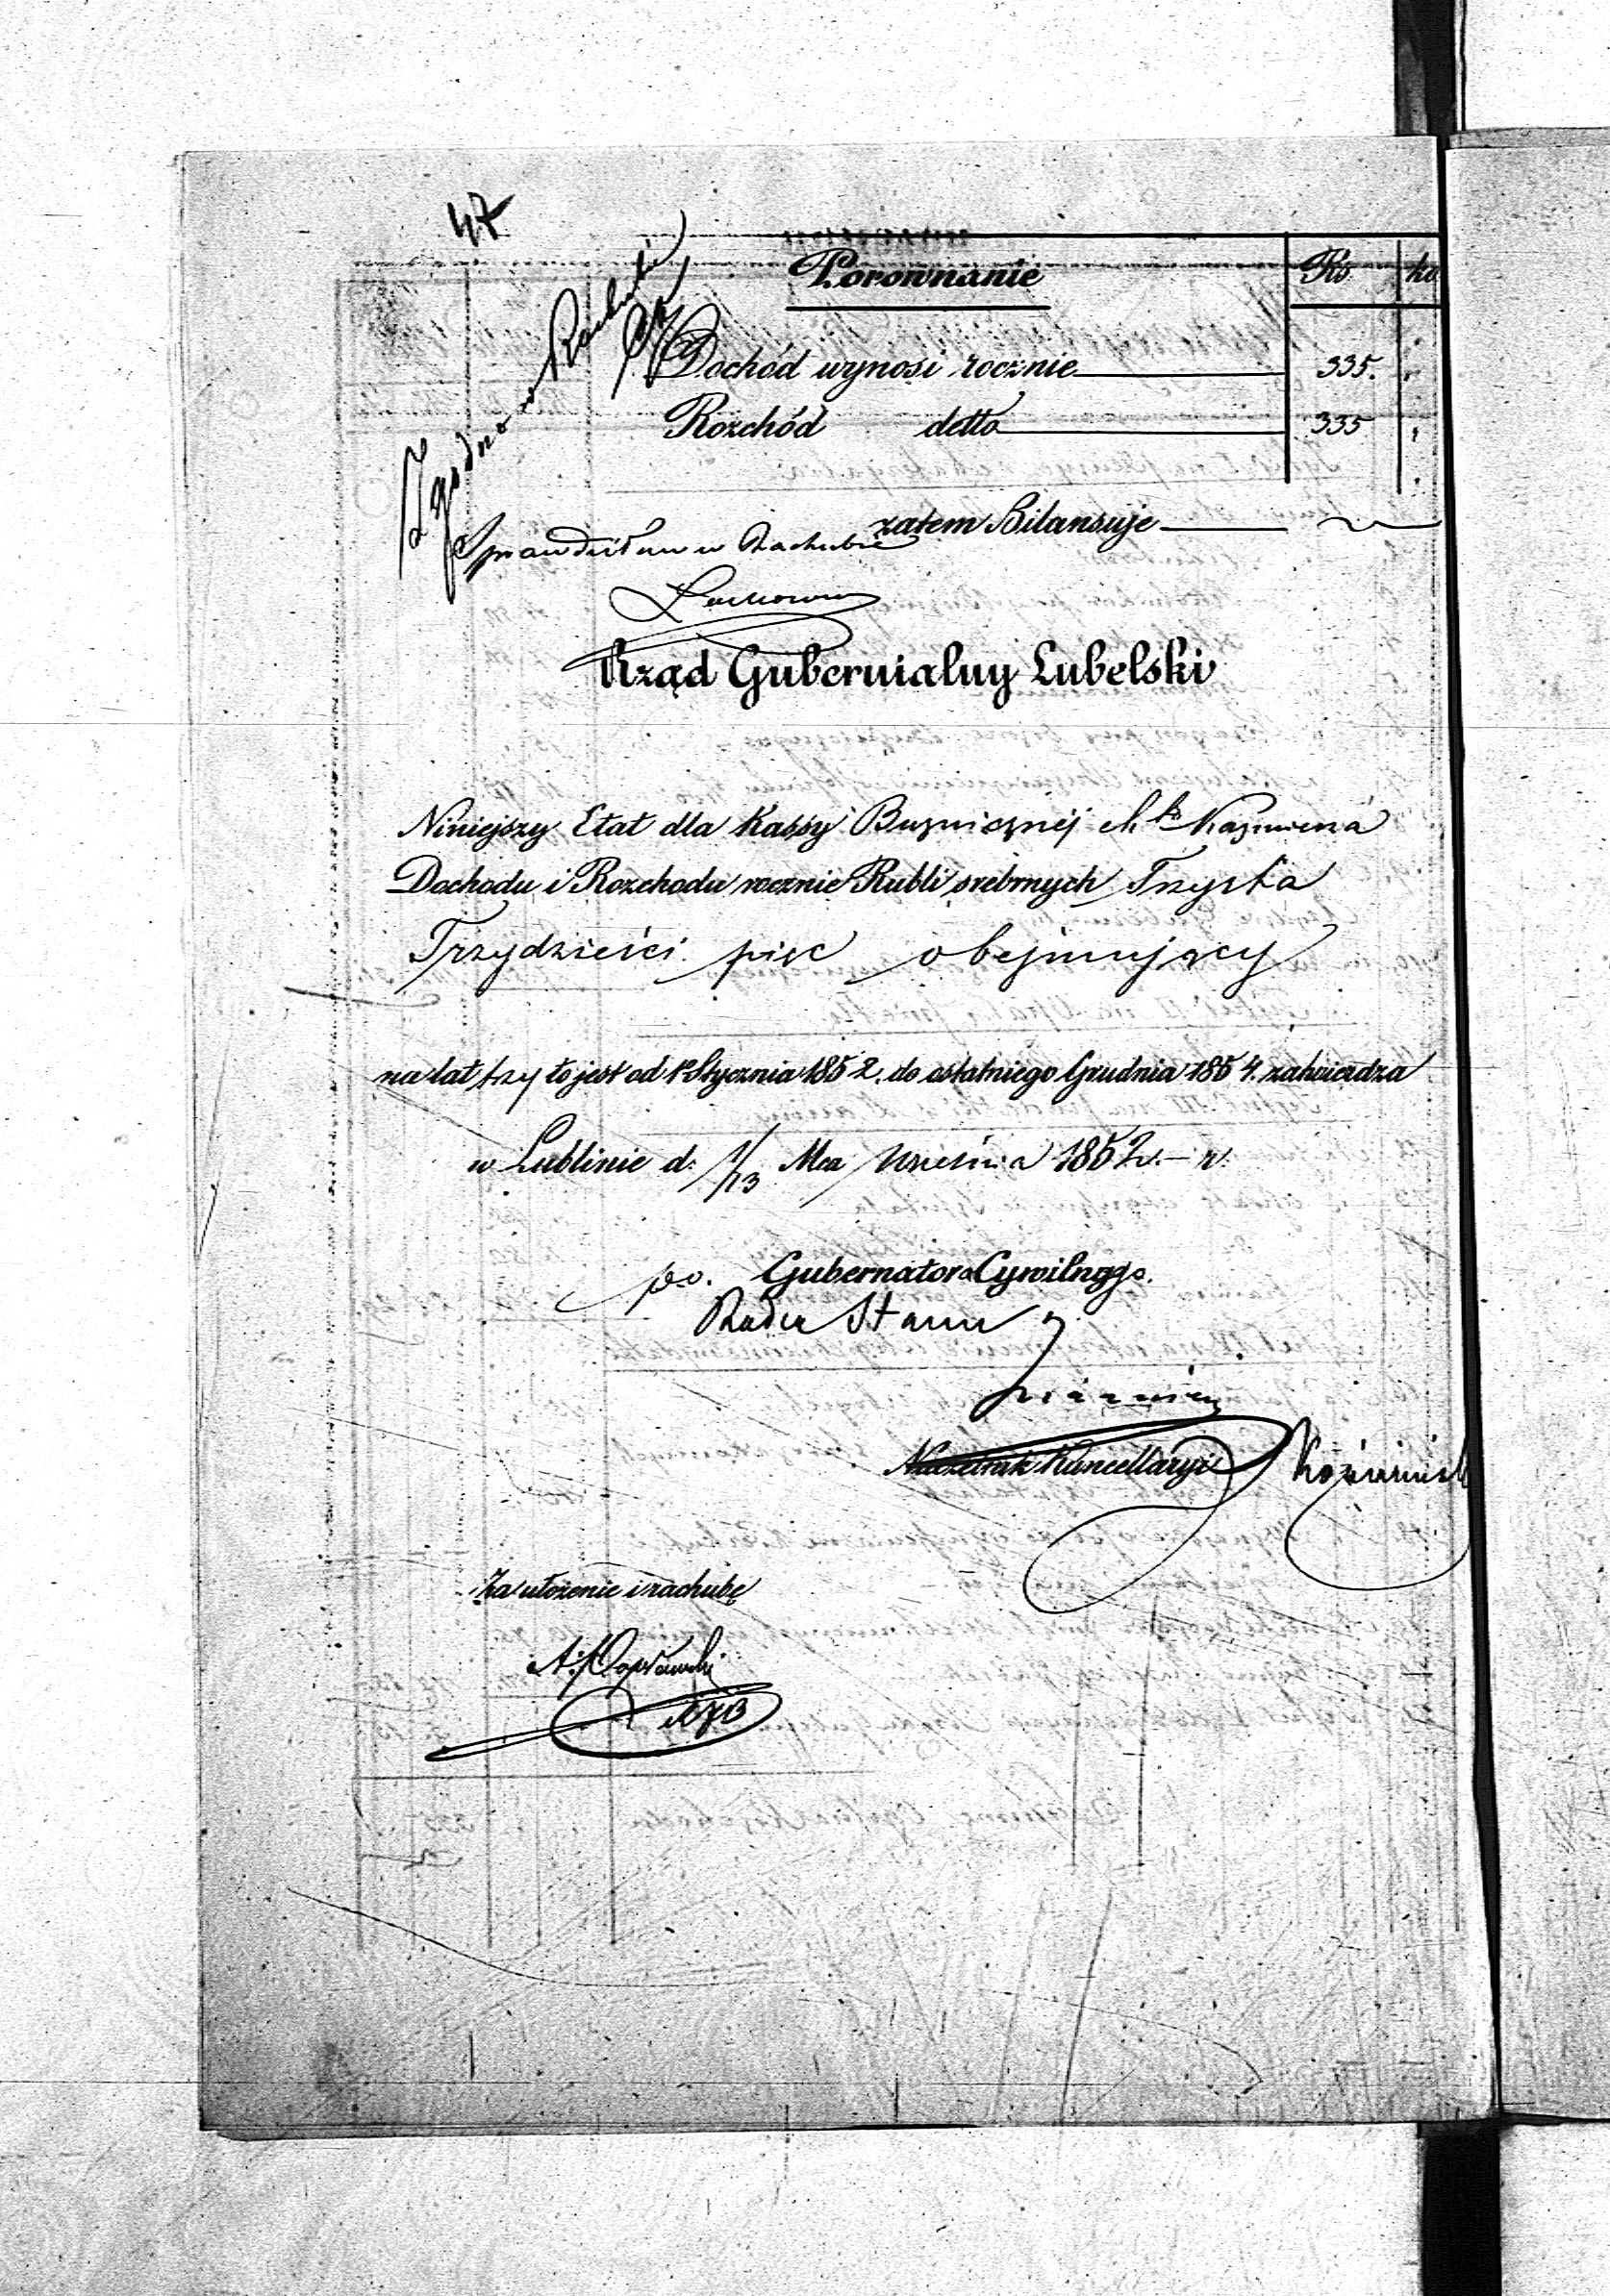 47
Porownanie Rs ko
Zgodno w Rachubie
Dochód wynosi rocznie 335.
Rozchód detto 335
zatem Bilansuje
Sprawdziłem w Rachubie
Rząd Gubernialny Lubelski
Niniejszy Etat dla Kassy Bużnicznéj Mta Kazimierza
Dochodu i Rozchodu rocznie Rubli srebrnych Trzysta
Trzydzieści pięc obejmujący
na lat trzy to jest od 1º Stycznia 1852. do ostatniego Grudnia 1854. zatwierdza
w Lublinie d. 1/13 Mca Września 1852.– r.
p.o. Gubernatora Cywilnego.
Radca Stanu
Naczelnik Kancellaryi
Za ułożenie i rachubę